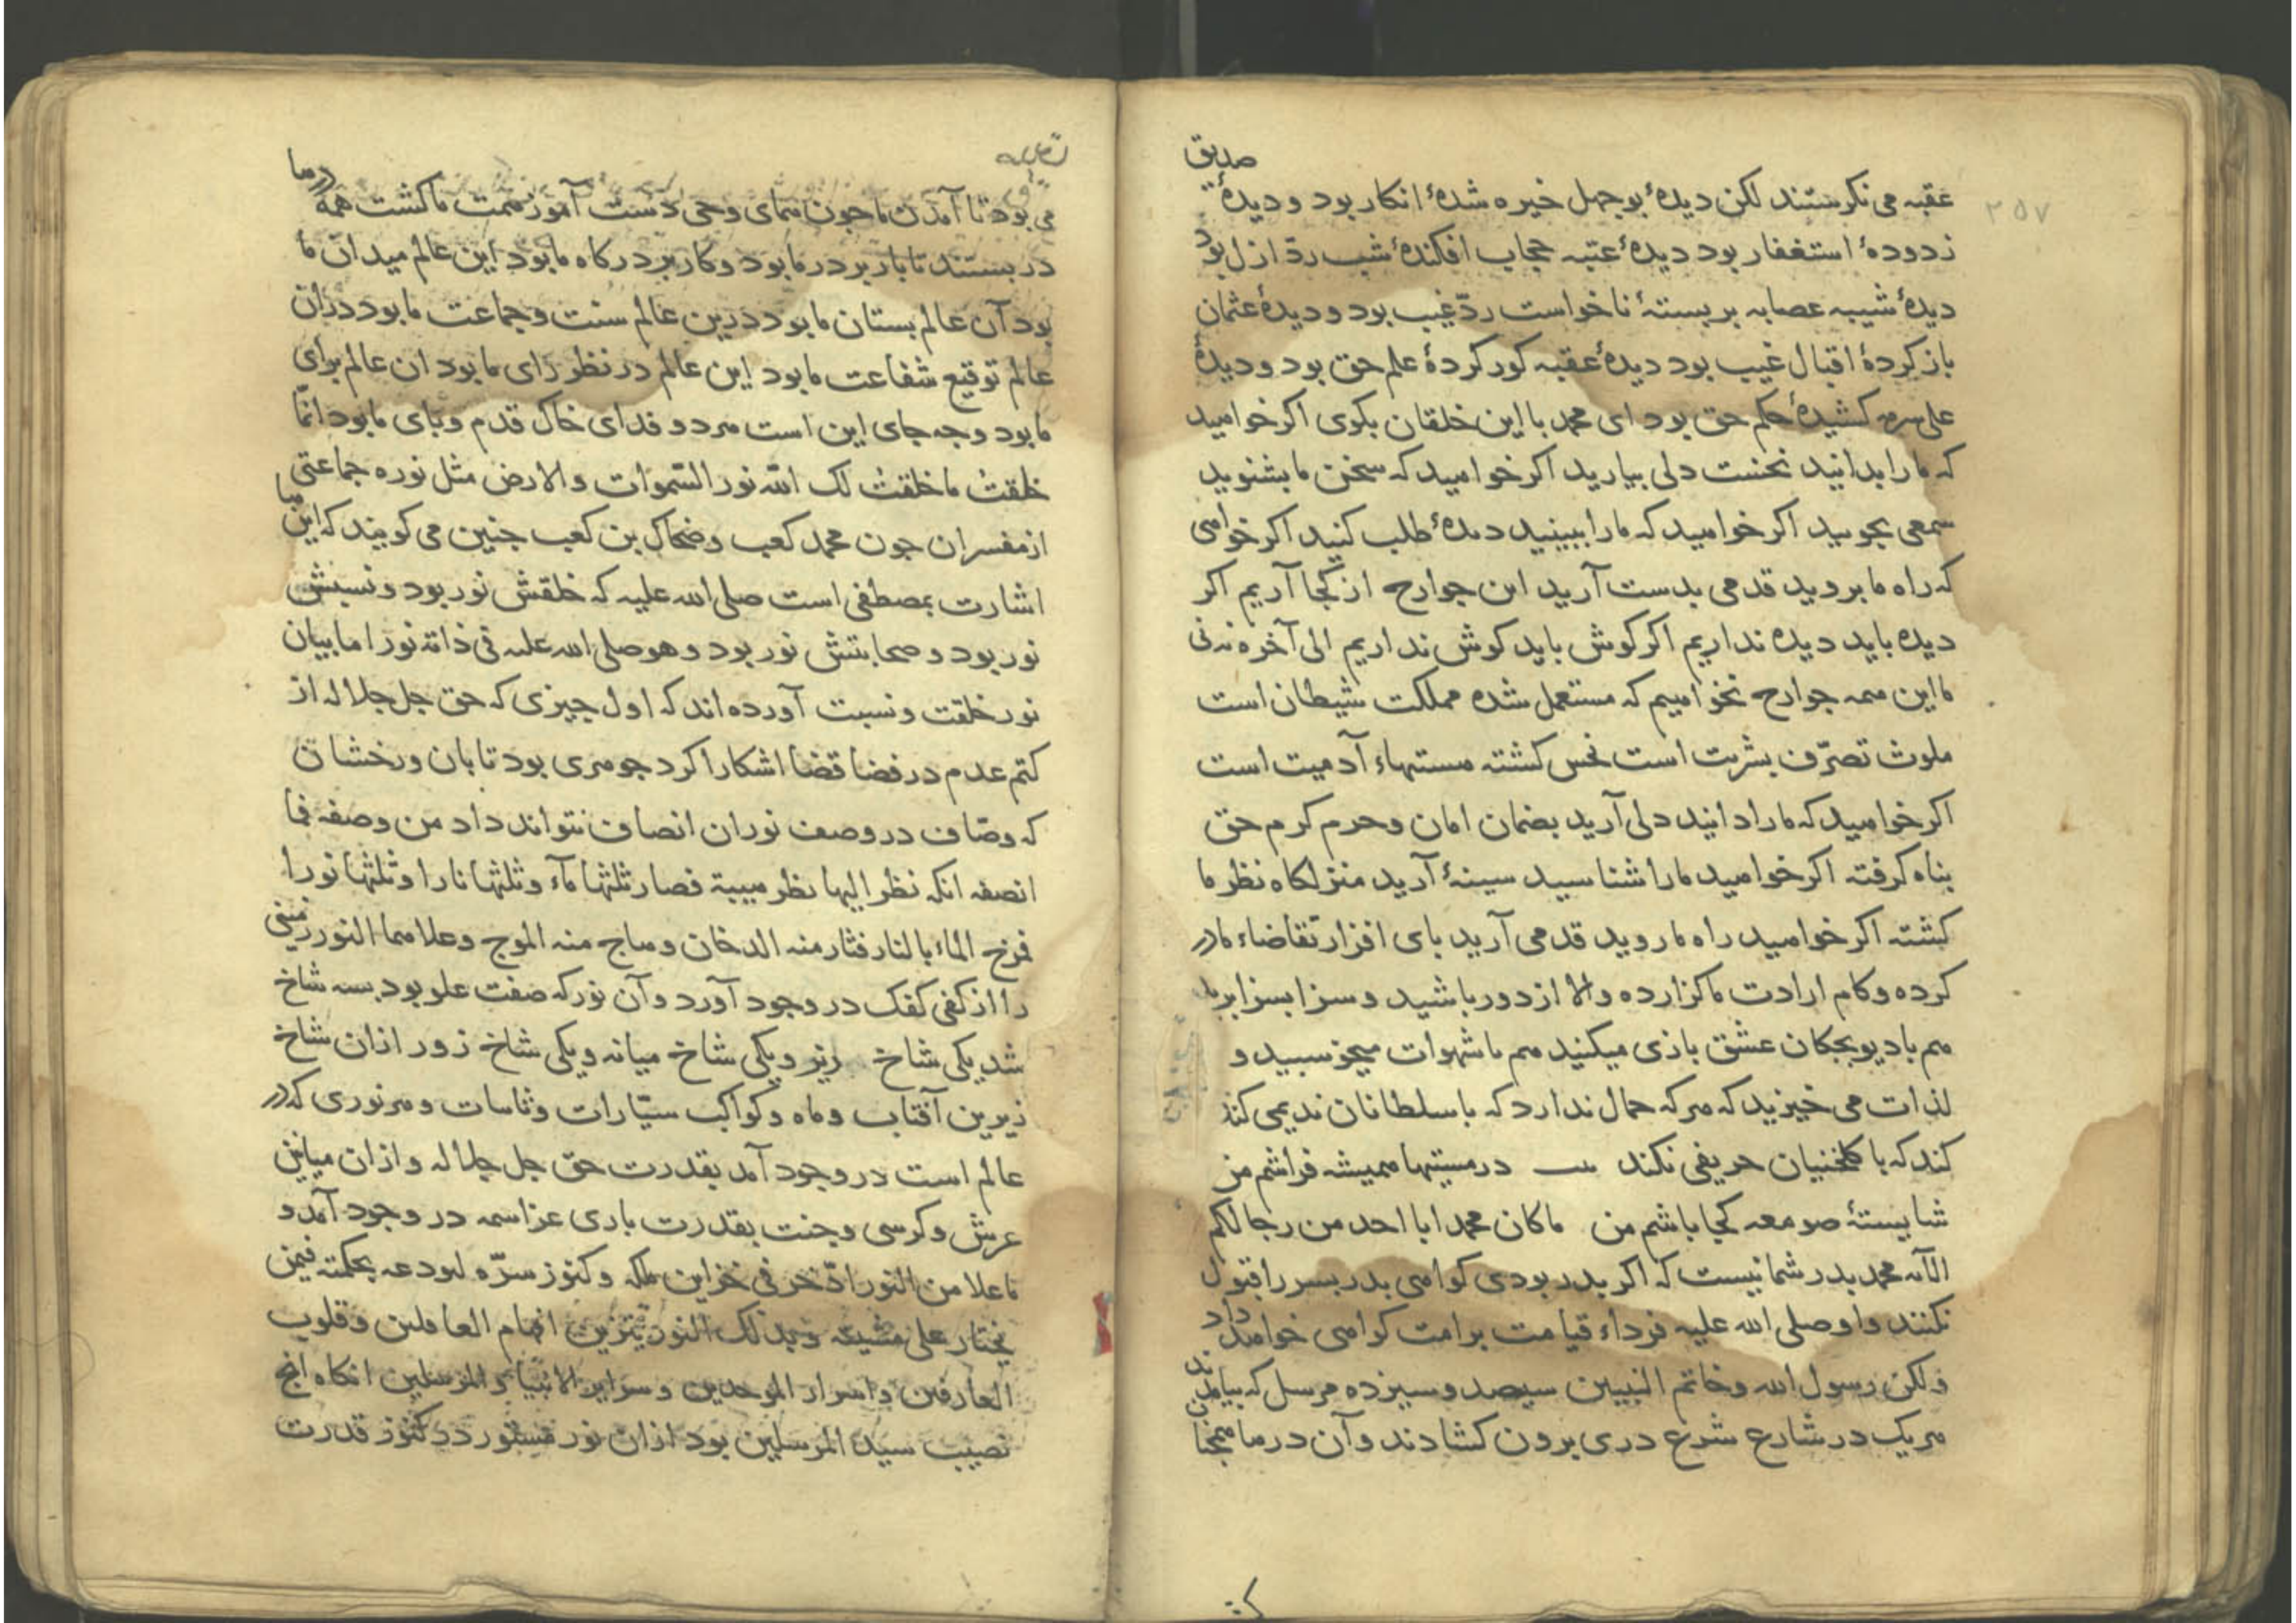 صدیق
۲۵۷
عقبه می نکرستند لکن دیدهٔ بوجهل خیره شدهٔ انکار بود و دیدهٔ
زدودهٔ استغفار بود دیدهٔ عتبه حجاب افکندهٔ شب ردّ ازل بود
دیدهٔ شیبه عصابه بر بستهٔ ناخواست ردّ غیب بود و دیدهٔ عثمان
باز کردهٔ اقبال غیب بود دیدهٔ عقبه کور کردهٔ علم حق بود و دیدهٔ
علی سرمه کشیدهٔ حکم حق بود ای محمد با این خلقان بکوی اکر خواهید
که ما را بدانید نخست دلی بیارید اکر خواهید که سخن ما بشنوید
سمعی بجویید اکر خواهید که ما را ببینید دیدهٔ طلب کنید اکر خواهی
که راه ما بروید قدمی بدست آرید این جوارح از کجا آریم اکر
دیده باید دیده نداریم اکر کوش باید کوش نداریم الی آخره نه نی
ما این همه جوارح نخواهیم که مستعمل شده مملکت شیطان است
ملوث تصرّف بشریت است نحس کشته مستیهاء آدمیت است
اکر خواهید که ما را دانید دلی آرید بضمان امان و حرم کرم حق
بناه کرفته اکر خواهید ما را شناسید سینهٔ آرید منزلکاه نظر ما
کشته اکر خواهید راه ما روید قدمی آرید بای افزار تقاضاء ما در
کرده و کام ارادت ما کزارده والا از دور باشید و سزا بسزا برید
هم با دیو بجکان عشق بازی میکنید هم با شهوات میخوسبید و
لذات می خیزید که هر که جمال ندارد که با سلطانان ندیمی کند
کند که با کلخنیان حریفی نکند در مستیها همیشه فراشم من
شایستهٔ صومعه کجا باشم من ما کان محمد ابا احد من رجالکم
الآیه محمد بدر شما نیست که اکر بدر بودی کواهی بدر بسر را قبول
نکنند و او صلی الله علیه فرداء قیامت بر امت کواهی خواهد داد
ولکن رسول الله و خاتم النبیین سیصد و سیزده مرسل که بیامدند
هریک در شارع شرع دری برون کشادند و آن درها همجنان
می بود تا آمدن ما جون همای وحی دست آموز همت ما کشت همه درها
در بستند تا بار بر در ما بود و کار بر درکاه ما بود این عالم میدان ما
بود آن عالم بستان ما بود درین عالم سنت و جماعت ما بود دران
عالم توقیع شفاعت ما بود این عالم در نظر رای ما بود ان عالم برای
ما بود و جه جای این است هر دو فدای خاک قدم و بای ما بود انّما
خلقتُ ما خلقتُ لک الله نور السّموات والارض مثل نوره جماعتی
از مفسران جون محمد کعب و ضحاک بن کعب جنین می کویند که این ها
اشارت بمصطفی است صلی الله علیه که خلقش نور بود و نسبتش
نور بود و صحابتش نور بود و هو صلی الله علیه فی ذاته نور اما بیان
نور خلقت و نسبت آورده اند که اول جیزی که حق جل جلاله از
کتم عدم در فضا قضا اشکارا کرد جوهری بود تابان و رخشان
که وصّاف در وصف نور ان انصاف نتواند داد من وصفه فما
انصفه انکه نظر الیها نظر هیبة فصار ثلثها مآء و ثلثها نارا و ثلثها نورا
فمزج الماء بالنار فثار منه الدخان و هاج منه الموج و علاهما النور زمینی
را از کفی کفک در وجود آورد و آن نور که صفت علو بود بسه شاخ
شد یکی شاخ زیر و یکی شاخ میانه و یکی شاخ زور ازان شاخ
زیرین آفتاب و ماه و کواکب سیّارات و ثابتات و هر نوری که در
عالم است در وجود آمد بقدرت حق جل جلاله و ازان میانین
عرش و کرسی و جنت بقدرت باری عز اسمه در وجود آمد و
ما علا من النور ادّخر فی خزاین ملکه و کنوز سرّه لیودعه بحکمته فیمن
یختار علی مشیته و بذلک النور یتزین افهام العاقلین و قلوب
العارفین و اسرار الموحدین و سرایر الانبیاء و المرسلین انکاه انج
نصیب سید المرسلین بود ازان نور مستور در کنوز قدرت